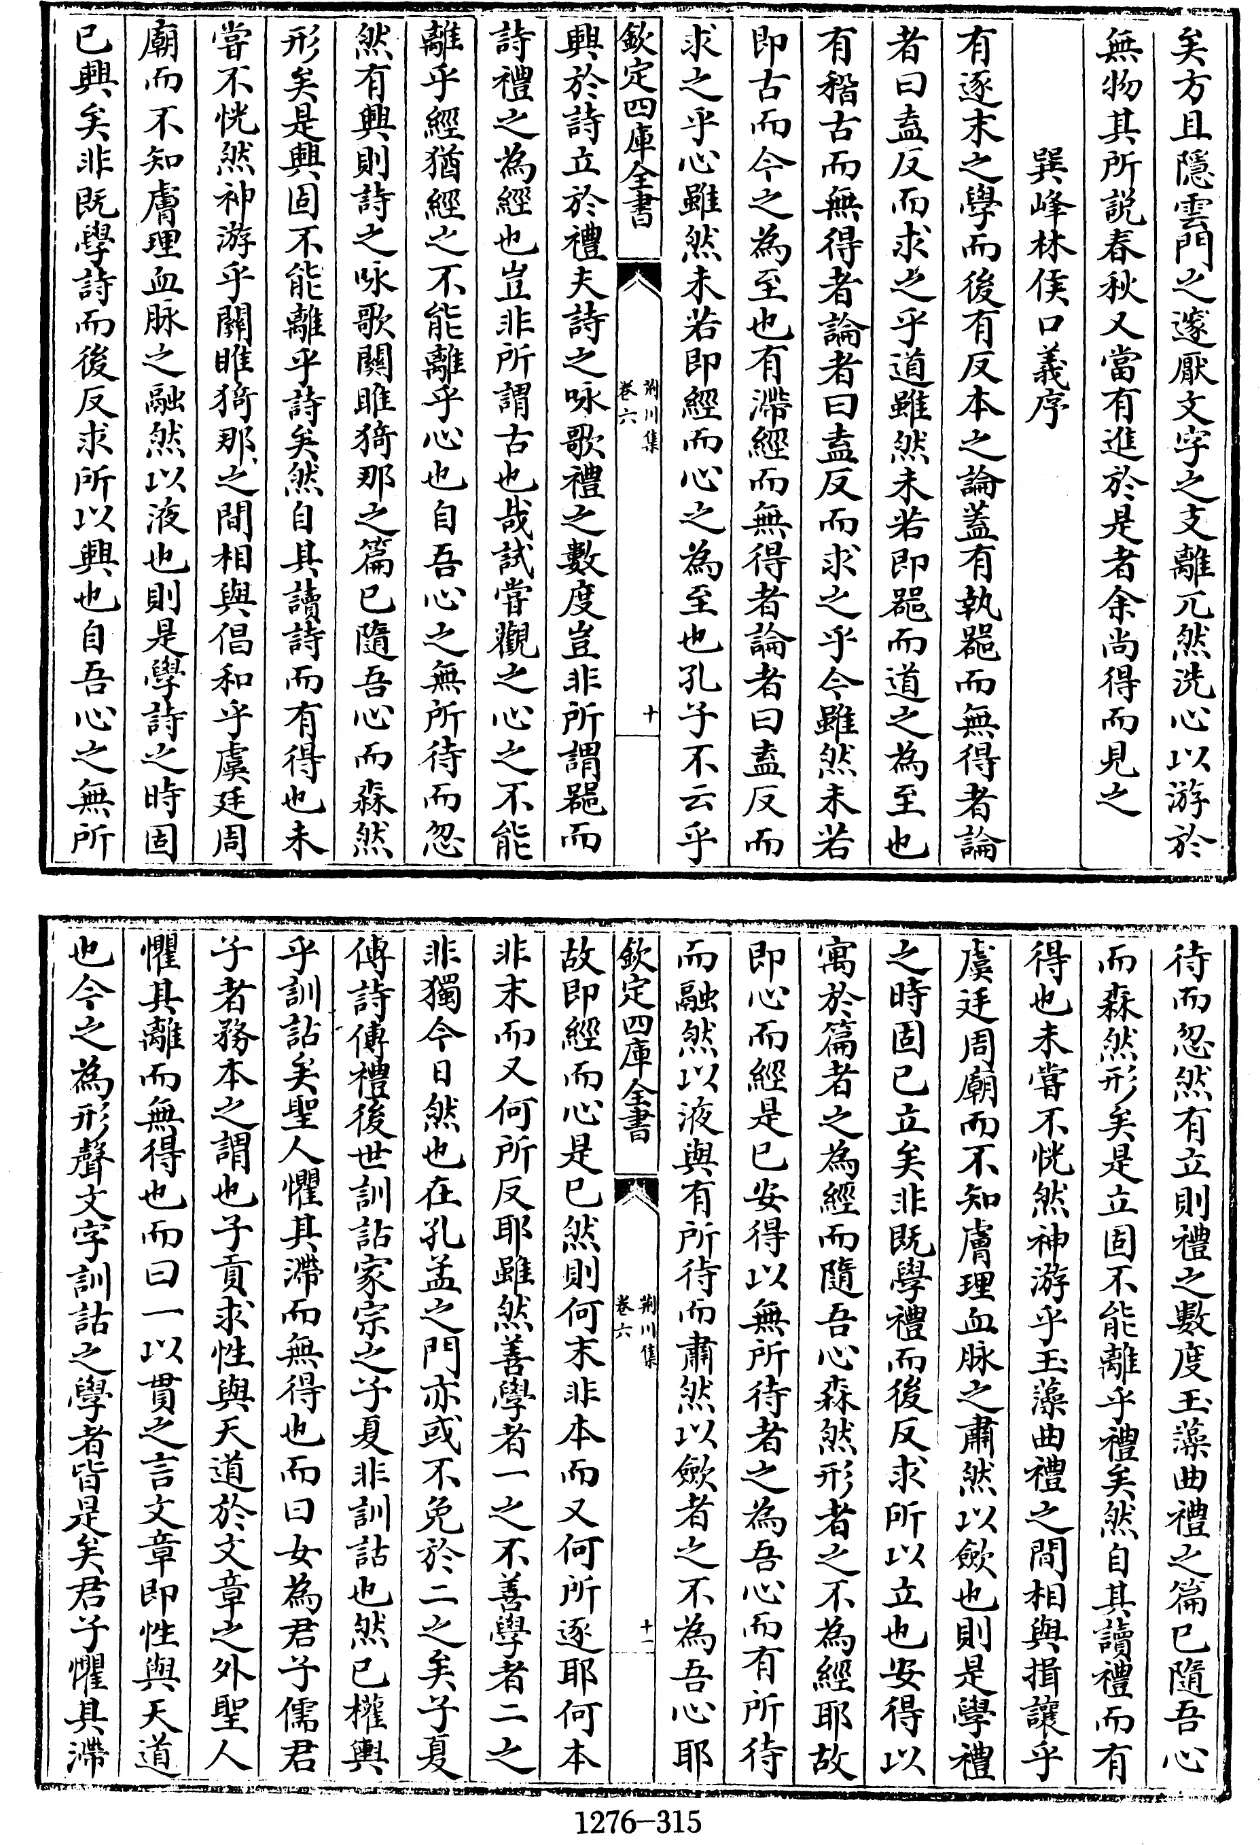 矣方且隱雲門之邃厭文字之支離兀然洗心以游於
無物其所説春秋又當有進於是者余尚得而見之
巽峰林侯口義序
有逐末之學而後有反本之論蓋有執器而無得者論
者曰盍反而求之乎道雖然未若即器而道之為至也
有稽古而無得者論者曰盍反而求之乎今雖然未若
即古而今之為至也有滯經而無得者論者曰盍反而
求之乎心雖然未若即經而心之為至也孔子不云乎
欽定四庫全書
荆川集
卷六
十
興於詩立於禮夫詩之咏歌禮之數度豈非所謂器而
詩禮之為經也豈非所謂古也哉試嘗觀之心之不能
離乎經猶經之不能離乎心也自吾心之無所待而忽
然有興則詩之咏歌關雎猗那之篇已隨吾心而森然
形矣是興固不能離乎詩矣然自其讀詩而有得也未
嘗不恍然神游乎關雎猗那之間相與倡和乎虞廷周
廟而不知膚理血脉之融然以液也則是學詩之時固
已興矣非既學詩而後反求所以興也自吾心之無所
待而忽然有立則禮之數度玉藻曲禮之篇已隨吾心
而森然形矣是立固不能離乎禮矣然自其讀禮而有
得也未嘗不恍然神游乎玉藻曲禮之間相與揖讓乎
虞廷周廟而不知膚理血脉之肅然以斂也則是學禮
之時固已立矣非既學禮而後反求所以立也安得以
寓於篇者之為經而隨吾心森然形者之不為經耶故
即心而經是已安得以無所待者之為吾心而有所待
而融然以液與有所待而肅然以斂者之不為吾心耶
欽定四庫全書
荆川集
卷六
十一
故即經而心是已然則何末非本而又何所逐耶何本
非末而又何所反耶雖然善學者一之不善學者二之
非獨今日然也在孔孟之門亦或不免於二之矣子夏
傳詩傳禮後世訓詁家宗之子夏非訓詁也然已權輿
乎訓詁矣聖人懼其滯而無得也而曰女為君子儒君
子者務本之謂也子貢求性與天道於文章之外聖人
懼其離而無得也而曰一以貫之言文章即性與天道
也今之為形聲文字訓詁之學者皆是矣君子懼其滯
1276-315